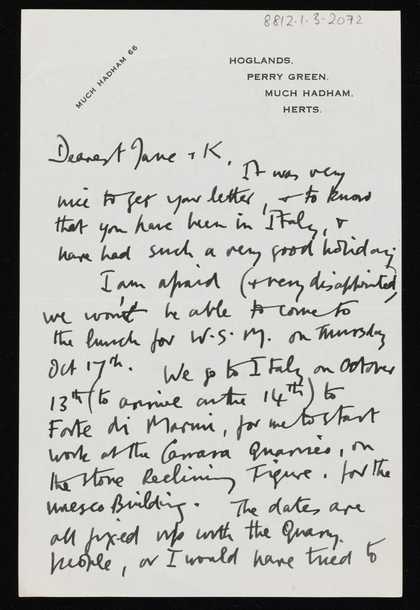 8812.1.3.2072
MUCH HADHAM 66
HOGLANDS,
PERRY GREEN,
MUCH HADHAM,
HERTS.
Dearest Jane & K,
It was very
nice to get your letter, & to know
that you have been in Italy, &
have had such a very good holiday
I am afraid (& very disappointed)
we won't be able to come to
the lunch for W.S.M. on Thursday
Oct 17th. We go to Italy on October
13th (to arrive on the 14th) to
Forte di Marmi, for me to start
work at the Carrara Quarries, on
the stone Reclining Figure, for the
Unesco Building. The dates are
all fixed up with the Quarry
people, or I would have tried to